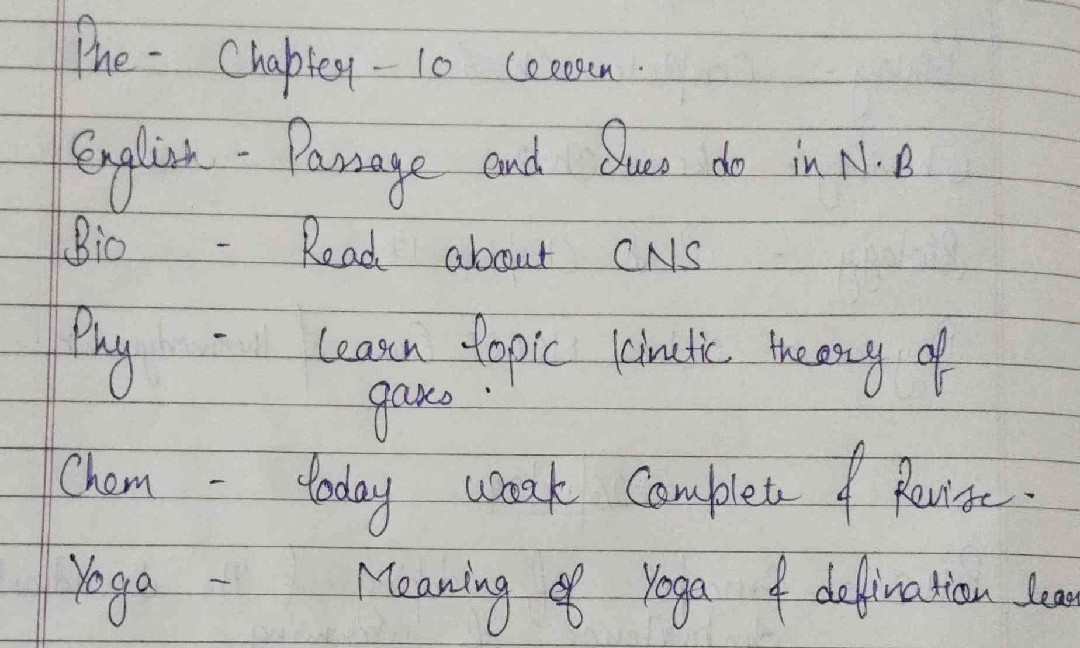 Phe - Chapter - 10 learn.
English - Passage and Ques do in N.B
Bio - Read about CNS
Phy - learn topic kinetic theory of
gases.
Chem - today work Complete & Revise.
Yoga - Meaning of Yoga & defination lear